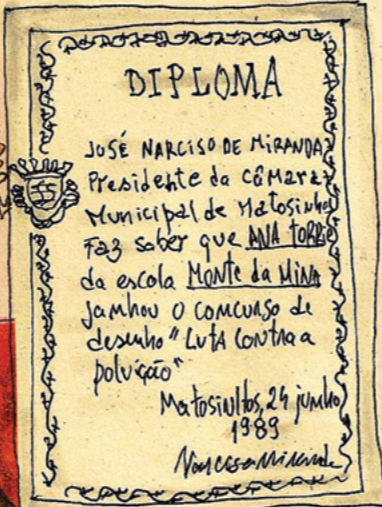 DIPLOMA
JOSÉ NARCISO DE MIRANDA
Presidente da CâMara
Municipal de Matosinhos
Faz saber que ANA TORRIE
da escola MONTE da MINA
Janhou o comcurso de
desenho "LutA Contra a
polvição"
Matosinhos, 24 junho
1989
Narciso Miranda